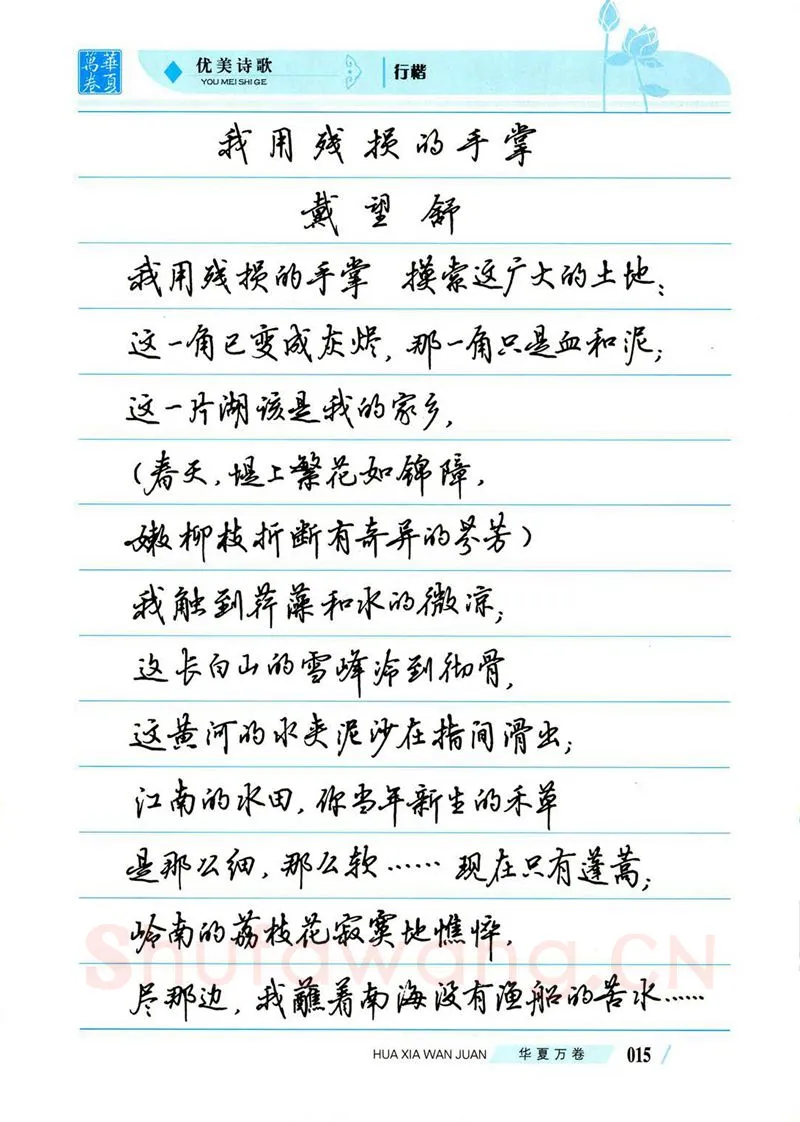 華夏
萬卷
优美诗歌
YOU MEI SHI GE
行楷
我用残损的手掌
戴望舒
我用残损的手掌 摸索这广大的土地:
这一角已变成灰烬,那一角只是血和泥;
这一片湖该是我的家乡,
(春天,堤上繁花如锦障,
嫩柳枝折断有奇异的芬芳)
我触到荇藻和水的微凉;
这长白山的雪峰冷到彻骨,
这黄河的水夹泥沙在指间滑出;
江南的水田,你当年新生的禾草
是那么细,那么软…… 现在只有蓬蒿;
岭南的荔枝花寂寞地憔悴,
尽那边,我蘸着南海没有渔船的苦水……
Shufawang.CN
HUA XIA WAN JUAN
华夏万卷
015